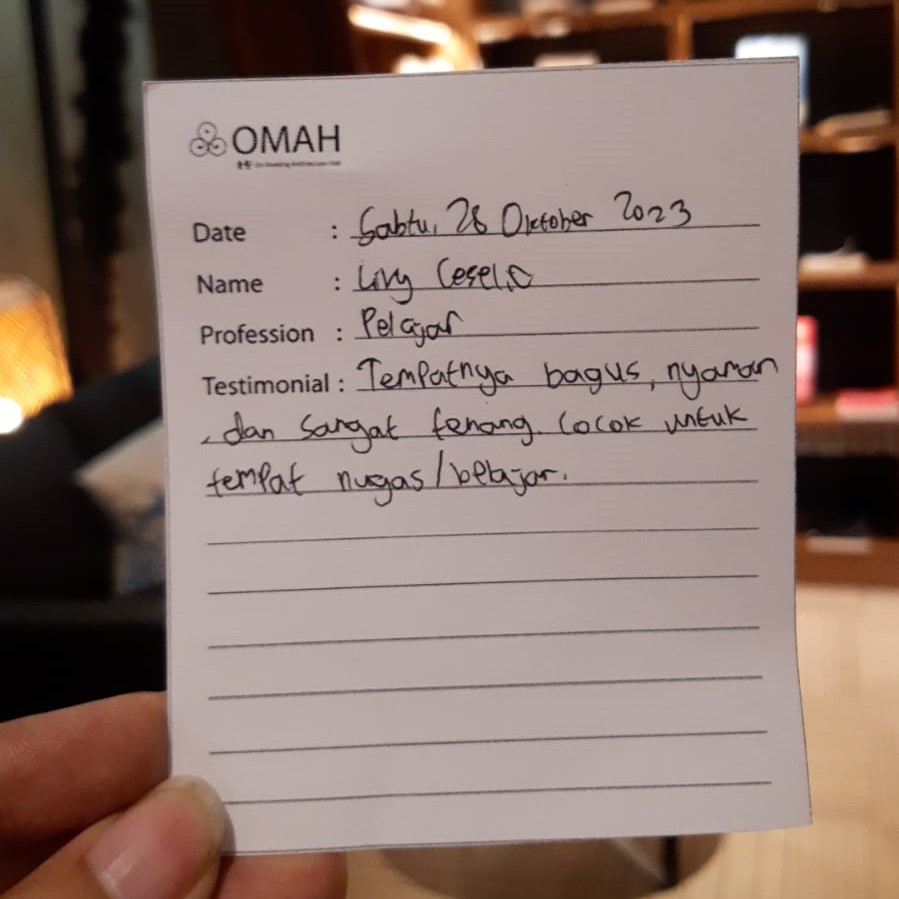 OMAH
Date : Sabtu, 28 Oktober 2023
Name : Livy Ceselia
Profession : Pelajar
Testimonial : Tempatnya bagus, nyaman
, dan sangat tenang. Cocok untuk
tempat nugas/belajar.